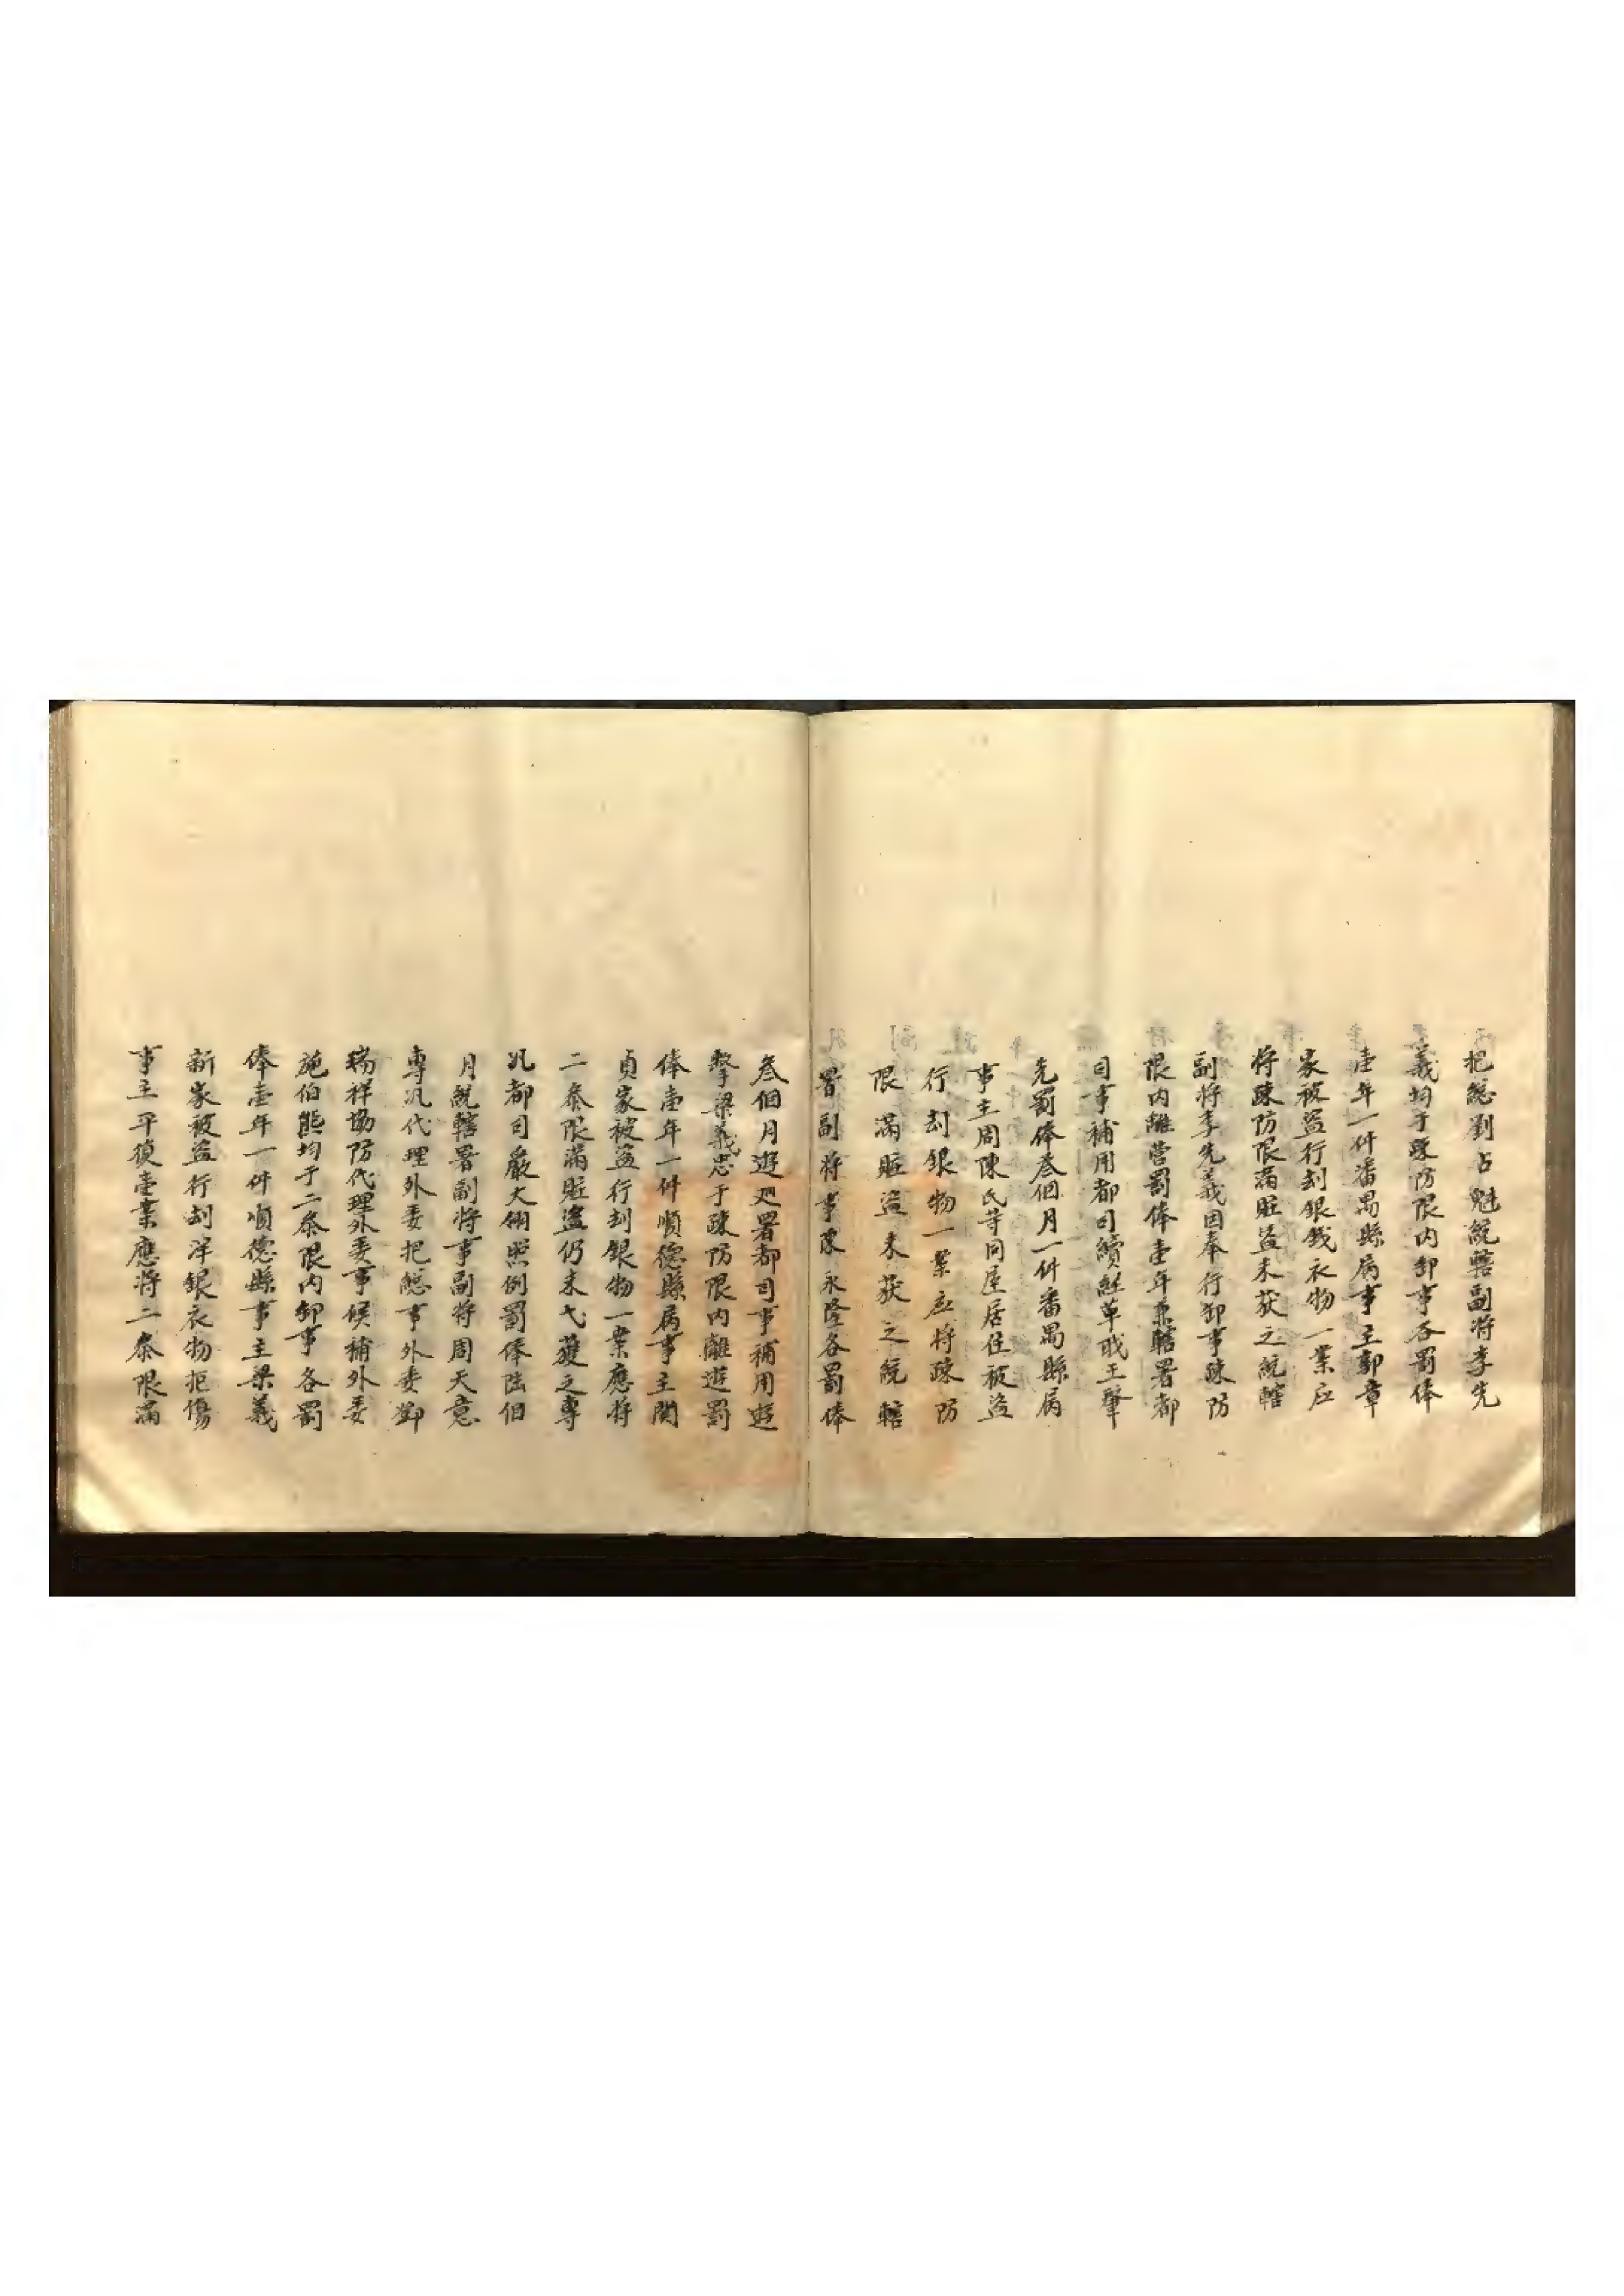 把總劉占魁統轄副將李先
義均于疎防限内卸事各罰俸
壹年一件番禺縣屬事主郭章
家被盜行刦銀錢衣物一案应
将疎防限滿賍盜未获之統轄
副将李先義因奉行卸事疎防
限内離營罰俸壹年兼轄署都
司事補用都司續經革戢王肇
先罰俸叁個月一件番禺縣屬
事主周陳氏等同屋居住被盜
行刦銀物一案应将疎防
限滿賍盜未获之統轄
署副将事陳永隆各罰俸
叁個月遊廵署都司事補用遊
擊梁義忠于疎防限内離遊罰
俸壹年一件順德縣屬事主関
貞家被盜行刦銀物一案應将
二叅限滿賍盜仍未弋獲之專
汛都司嚴大猷照例罰俸陆個
月統轄署副将事副将周天意
專汛代理外委把總事外委鄧
瑞祥協防代理外委事候補外委
施伯熊均于二叅限内卸事各罰
俸壹年一件順德縣事主梁義
新家被盜行刦洋銀衣物拒傷
事主平復壹案應将二叅限滿